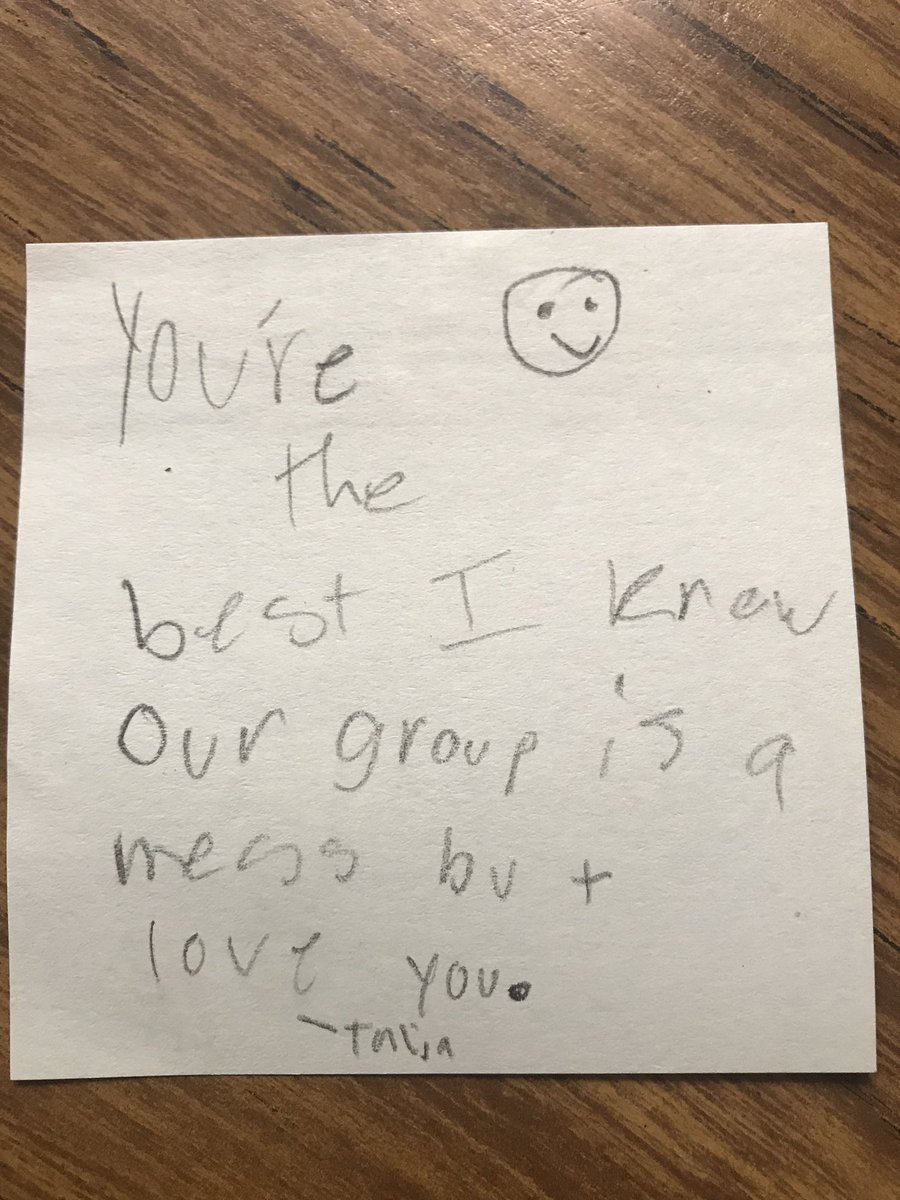 You're
the
best I know
Our group is a
mess but
love you.
-Talia